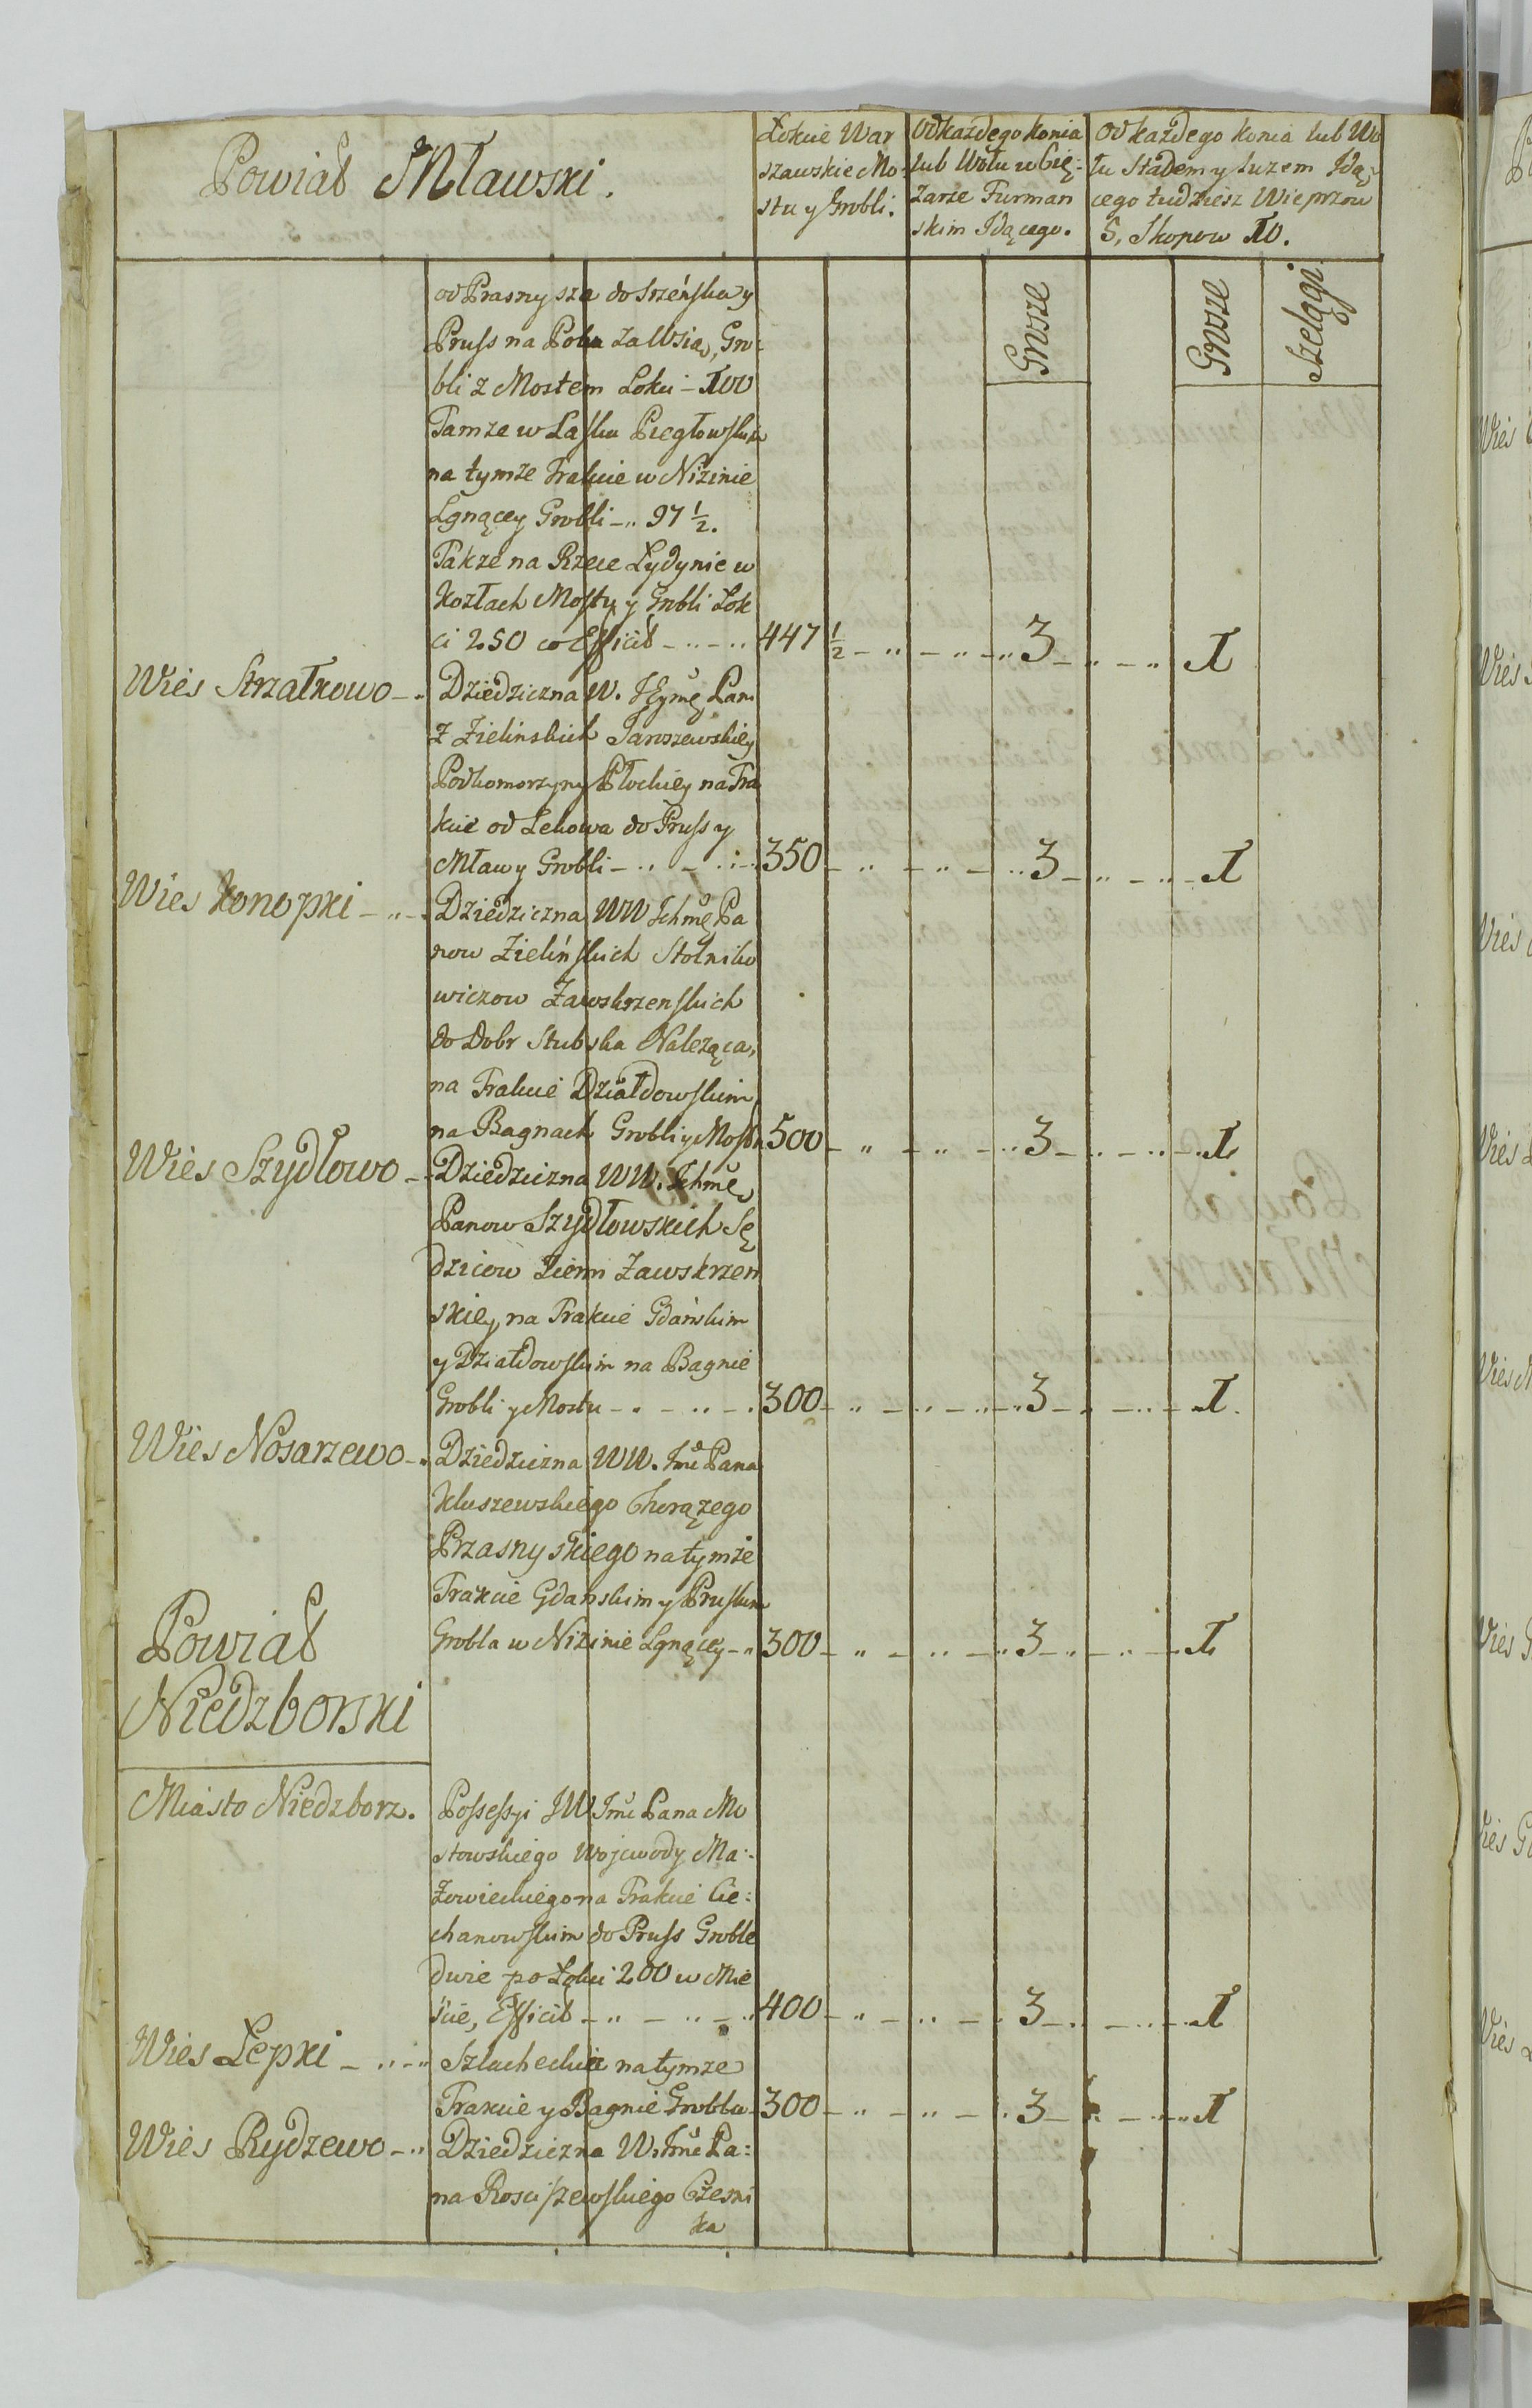 Powiat Mławski.
Łokcie War
szawskie Mo-
stu y Grobli.
Od każdego konia
lub Wołu w Cię:
żarze Furman
skim Idącego.
Od każdego konia lub Wo
łu Stadem y luzem Idą:
cego tudziesz Wieprzow
5, Skopow 10.
Grosze
Grosze
Szelągi
od Prasnysza do Srzeńska y
Pruss na Polu za Wsią, Gro:
bli z Mostem Łokci - 100
Tamze w Lasku Piegłowskim
na tymze Trakcie w Nizinie
Lgnącey Grobli - 97 1/2.
Takze na Rzece Łydynie w
Kozłach Mostu y Grobli Łok
ci 250 co Efficit - 447 1/2 - 3 - 1
Wieś Strzałkowo - Dziedziczna W. JEymę Pani
z Zielinskich Jaroszewskiey
Podkomorzyny Płockiey na Tra
kcie od Lekowa do Pruss y
Mławy Grobli - 350 - 3 - 1
Wieś Konopki - Dziedziczna WW Ichmę Pa
now Zielińskich Stolniko
wiczow Zawskrzenskich
do Dobr Stubska Naleząca,
na Trakcie Działdowskim
na Bagnach Grobli y Mostu 500 - 3 - 1
Wieś Szydłowo - Dziedziczna WW. Ichmę
Panow Szydłowskich Sę
dzicow Ziemi Zawskrzen
skiey na Trakcie Gdańskim
y Działdowskim na Bagnie
Grobli y Mostu - 300 - 3 - 1.
Wieś Nosarzewo - Dziedziczna WW. Imć Pana
Kluszewskiego Chorążego
Przasnyskiego na tymże
Trakcie Gdanskim y Pruskim
Grobla w Nizinie Lgnącey - 300 - 3 - 1
Powiat
Niedzborski
Miasto Niedzborz. Possessyi JW Imć Pana Mo
stowskiego Wojewody Ma:
zowieckiego na Trakcie Cie:
chanowskim do Pruss Groble
dwie po Łokci 200 w Mie
ście, Efficit - 400 - 3 - 1
Wieś Łepki - Szlachecka na tymze
Trakcie y Bagnie Grobla 300 - 3 - 1
Wieś Rydzewo - Dziedziczna W. Imć Pa:
na Rosciszewskiego Czesni
ka